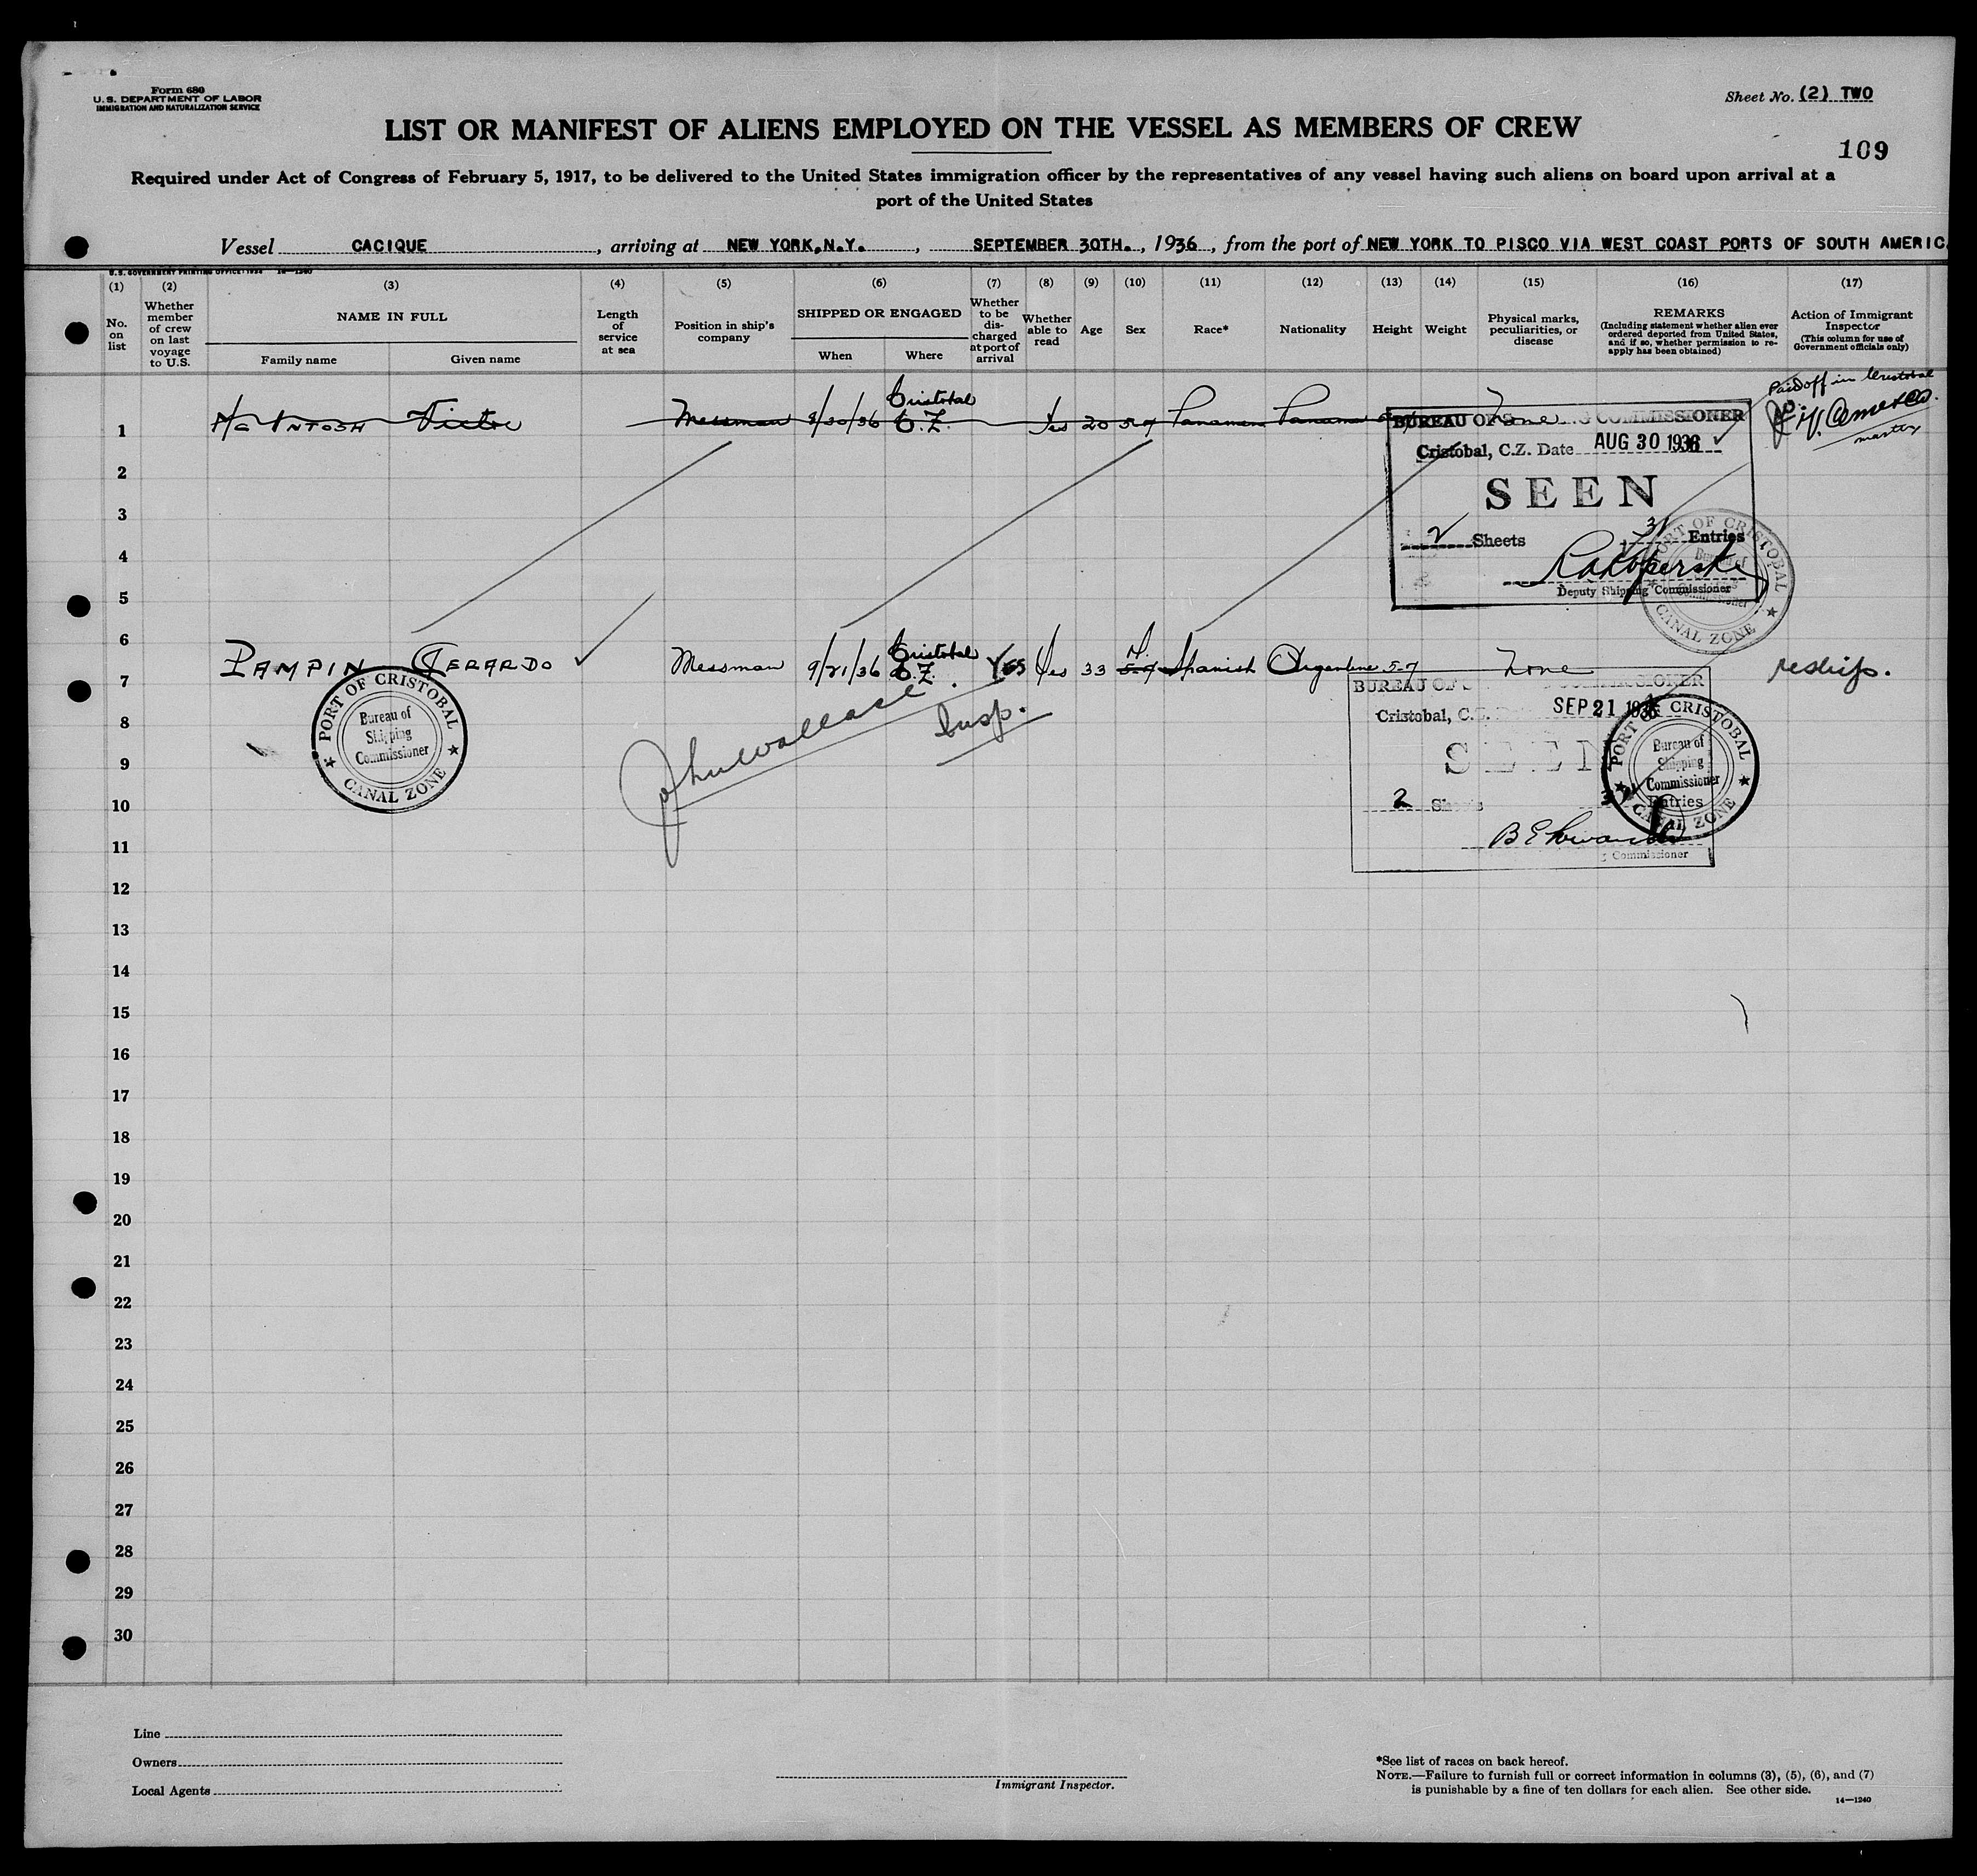 Form 680
U.S. DEPARTMENT OF LABOR
IMMIGRATION AND NATURALIZATION SERVICE
Sheet No. (2) TWO
LIST OR MANIFEST OF ALIENS EMPLOYED ON THE VESSEL AS MEMBERS OF CREW
109
Required under Act of Congress of February 5, 1917, to be delivered to the United States immigration officer by the representatives of any vessel having such aliens on board upon arrival at a
port of the United States
Vessel CACIQUE, arriving at NEW YORK,N.Y., SEPTEMBER 30TH., 1936, from the port of NEW YORK TO PISCO VIA WEST COAST PORTS OF SOUTH AMERIC
(1) (2) (3) (4) (5) (6) (7) (8) (9) (10) (11) (12) (13) (14) (15) (16) (17)
No. on list
Whether member of crew on last voyage to U.S.
NAME IN FULL
Family name Given name
Length of service at sea
Position in ship's company
SHIPPED OR ENGAGED
When Where
Whether to be discharged at port of arrival
Whether able to read
Age
Sex
Race*
Nationality
Height
Weight
Physical marks, peculiarities, or disease
REMARKS
(Including statement whether alien ever ordered deported from United States, and if so, whether permission to reapply has been obtained)
Action of Immigrant Inspector
(This column for use of Government officials only)
Paid off in Cristobal
master
1 McIntosh Victor Messman 8/30/36 Cristobal C.Z. Yes 20 5-7 Panaman Panama None
BUREAU OF COMMISSIONER
Cristobal, C.Z. Date AUG 30 1936
SEEN
2 Sheets 31 Entries
Deputy Shipping Commissioner
PORT OF CRISTOBAL
Bureau of
Commissioner
CANAL ZONE
2
3
4
5
6
7 PAMPIN GERARDO Messman 9/21/36 Cristobal C.Z. YES Yes 33 M. 5-7 Spanish Argentine 5-7 None reships.
PORT OF CRISTOBAL
Bureau of
Shipping
Commissioner
CANAL ZONE
John Wallace
Insp.
BUREAU OF
Cristobal, C. SEP 21 1936
SEEN
2 Sheets
Entries
Commissioner
PORT OF CRISTOBAL
Bureau of
Shipping
Commissioner
CANAL ZONE
8
9
10
11
12
13
14
15
16
17
18
19
20
21
22
23
24
25
26
27
28
29
30
Line
Owners
Local Agents
Immigrant Inspector.
*See list of races on back hereof.
NOTE.—Failure to furnish full or correct information in columns (3), (5), (6), and (7)
is punishable by a fine of ten dollars for each alien. See other side.
14—1240